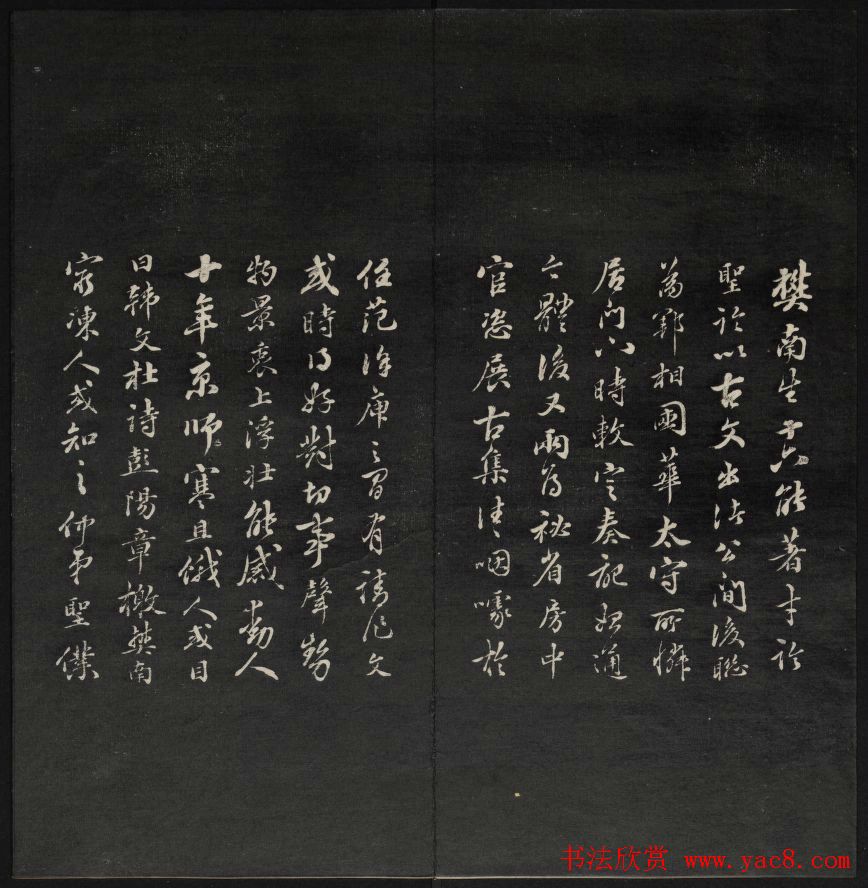 樊南生十六能著才論
聖論以古文出諸公間後聯
為鄆相國華太守所憐
居門下時敕定奏記始通
今體後又兩為祕省房中
官恣展古集往往咽噱於
任范徐庾之間有請作文
或時得好對切事聲勢
物景哀上浮壯能感動人
十年京師寒且餓人或目
曰韓文杜詩彭陽章檄樊南
窮凍人或知之仲弟聖僕
书法欣赏 www.yac8.com